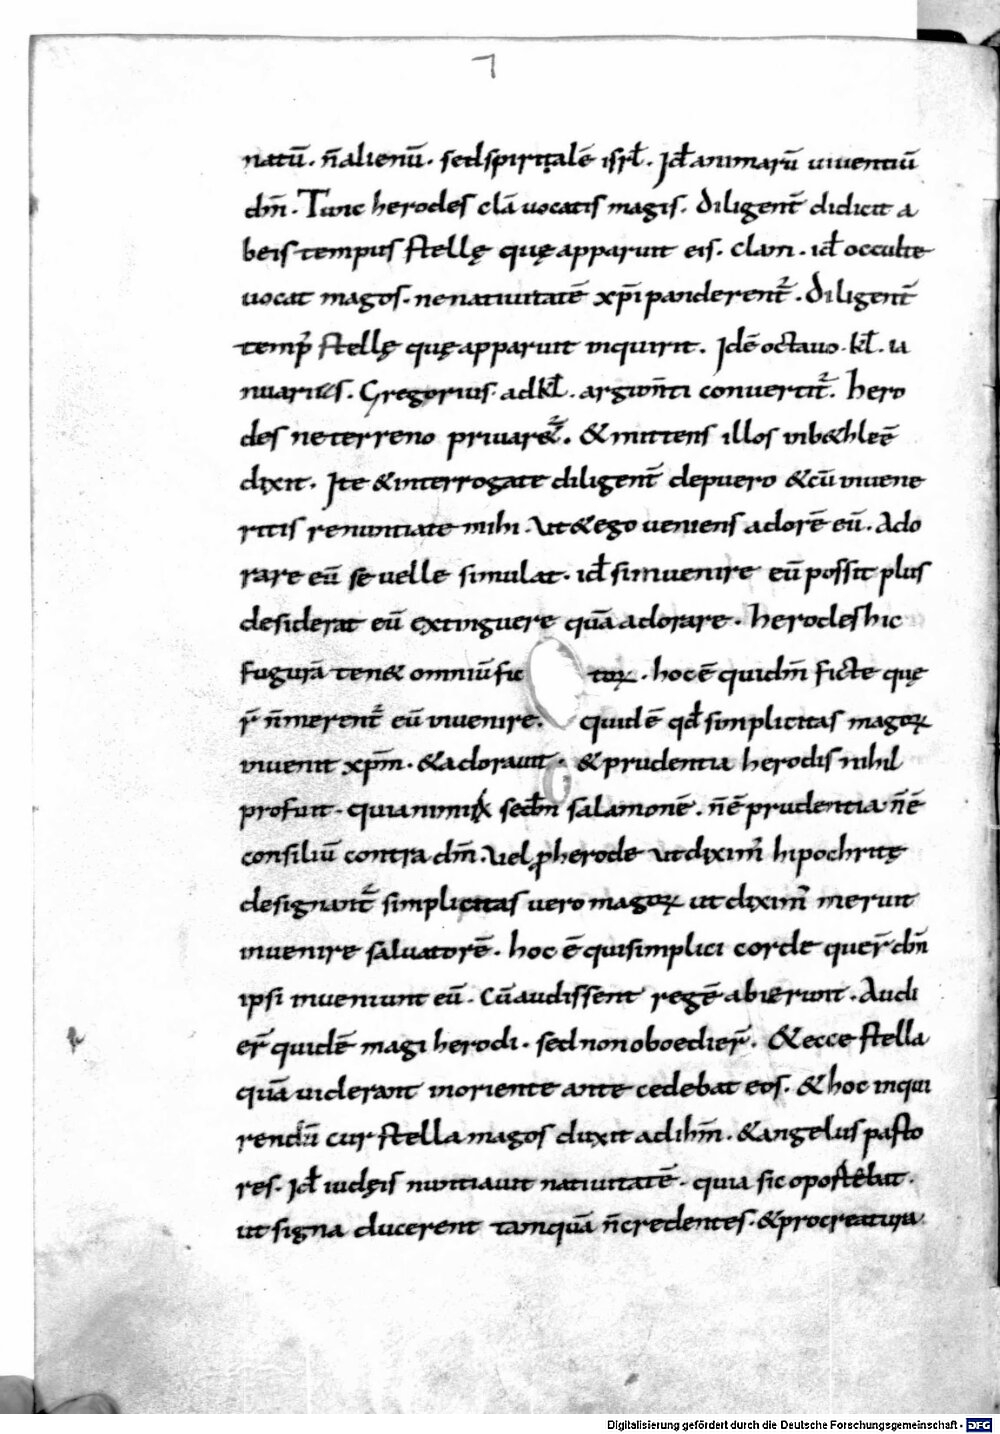 7
natū. n̄ alienū. sed spiritalē isrl̄. Id̄ animarū uiuentiū
dm̄. Tunc herodes clā uocatis magis. diligent̄ didicit a
beis tempus stellę quę apparuit eis. clam. id̄ occulte
uocat magos. ne natiuitatē xp̄i panderent᷑. diligent̄
temp᷒ stellę quę apparuit inquirit. Idē octauo. kl̄. ia
nuarius. Gregorius ad kl̄. conuertit᷑. hero
des ne terreno priuaret᷑. & mittens illos in b&hleē
dixit. Ite & interrogate diligent̄ de puero & cū inuene
ritis renuntiate mihi. Ut & ego ueniens adorē eū. Ado
rare eū se uelle simulat. id̄ si inuenire eū possit plus
desiderat eū extinguere quā adorare. herodes hic
figurā ten& omniū fic toꝝ. hoc ē quidm̄ ficte quę
r̄ n̄ merent᷑ eū inuenire. quid ē qd̄ simplicitas magoꝝ
inuenit xp̄m. & adorauit. & prudentia herodis nihil
profuit. quia nimiꝝ secdm̄ salamonē. n̄ ē prudentia n̄ ē
consiliū contra dm̄. Uel ꝓ herode ut dixim᷒ hipochritę
designant᷑ simplicitas uero magoꝝ ut dixim᷒ meruit
inuenire saluatorē. hoc ē qui simplici corde quer̄ dm̄
ipsi inueniunt eū. Cū audissent regē abierunt. Audi
er̄ quidē magi herodi. sed non oboedier̄. & ecce stella
quā uiderant in oriente antecedebat eos. & hoc inqui
rendū cur stella magos duxit ad ihm̄. & angelus pasto
res. Id̄ iudęis nuntiauit natiuitatē. quia sic oportebat.
ut signa ducerent tamquā n̄ credentes. & pro creatura
Digitalisierung gefördert durch die Deutsche Forschungsgemeinschaft - DFG